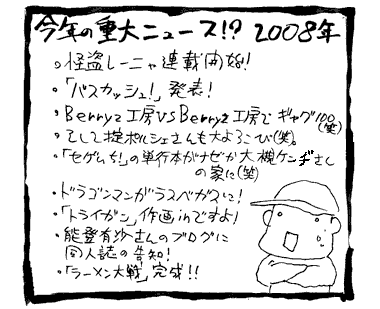 今年の重大ニュース!? 2008年
。怪盗レーニャ連載開始!
。「バスカッシュ!」発表!
。Berryz工房VSBerryz工房でギャグ100(笑)
。そして掟ポルシェさんも大よろこび(笑)。
。「セゲムち!」の単行本がナゼか大槻ケンヂさん
の家に(笑)
。ドラゴンマンがラスベガスに!
。「トライガン」作画inですよ!
。能登有沙さんのブログに
同人誌の告知!
。「ラーメン大戦」完成!!